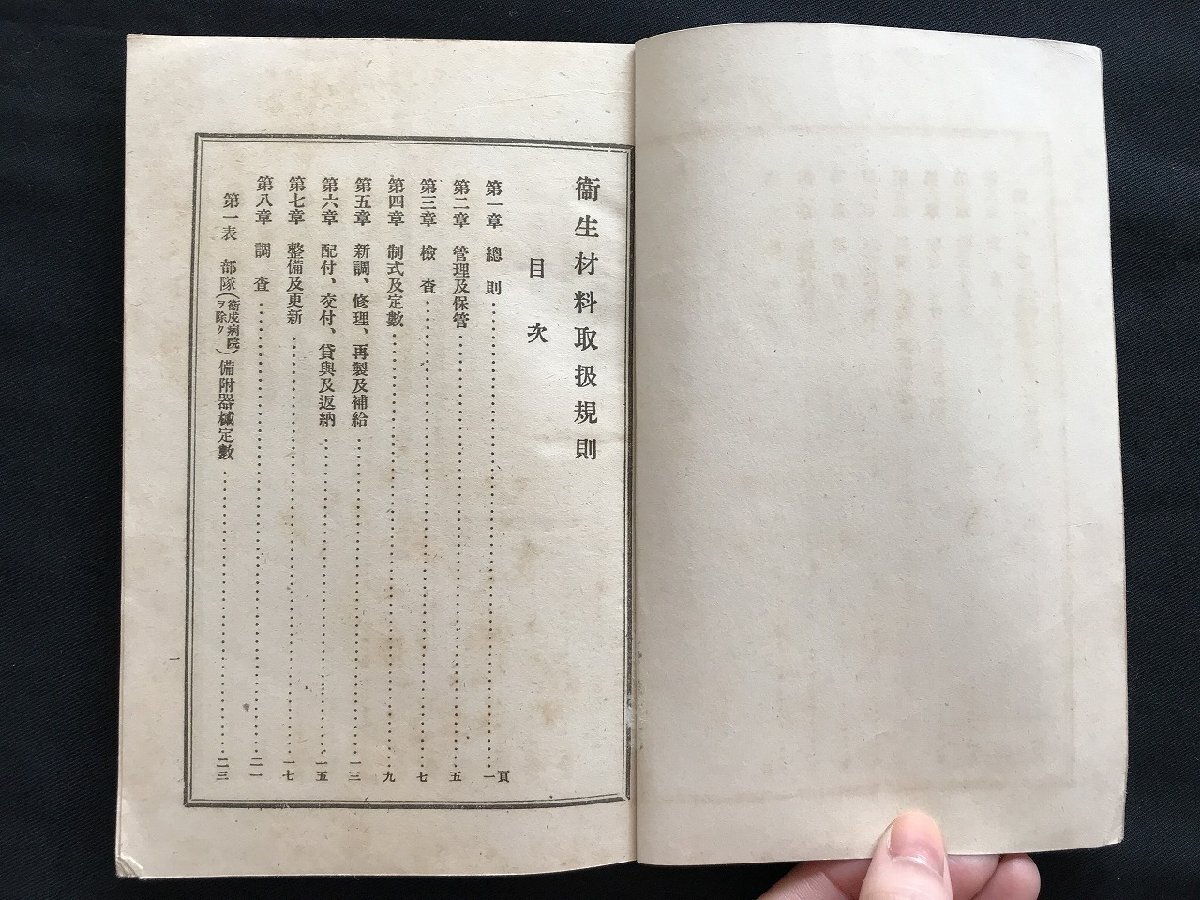 衞生材料取扱規則
目次
頁
第一章 總則……一
第二章 管理及保管……五
第三章 檢査……七
第四章 制式及定數……九
第五章 新調、修理、再製及補給……一三
第六章 配付、交付、貸與及返納……一五
第七章 整備及更新……一七
第八章 調査……二一
第一表 部隊(衞戍病院ヲ除ク)備附器械定數……二三
一